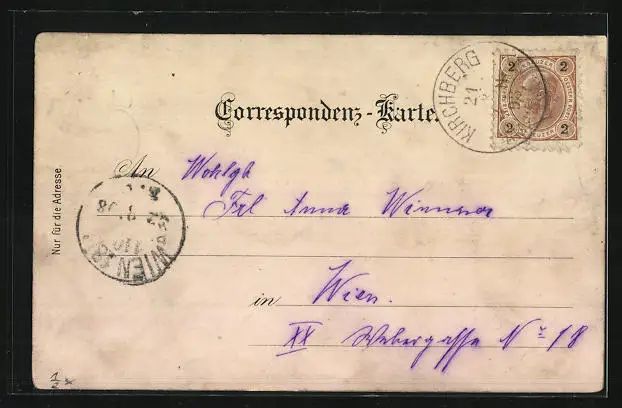 Correspondenz-Karte.
KIRCHBERG
21
2 2
2 2
An Wohlgb
Frl Anna
Nur für die Adresse.
WIEN
in Wien.
XX Webergasse No 18